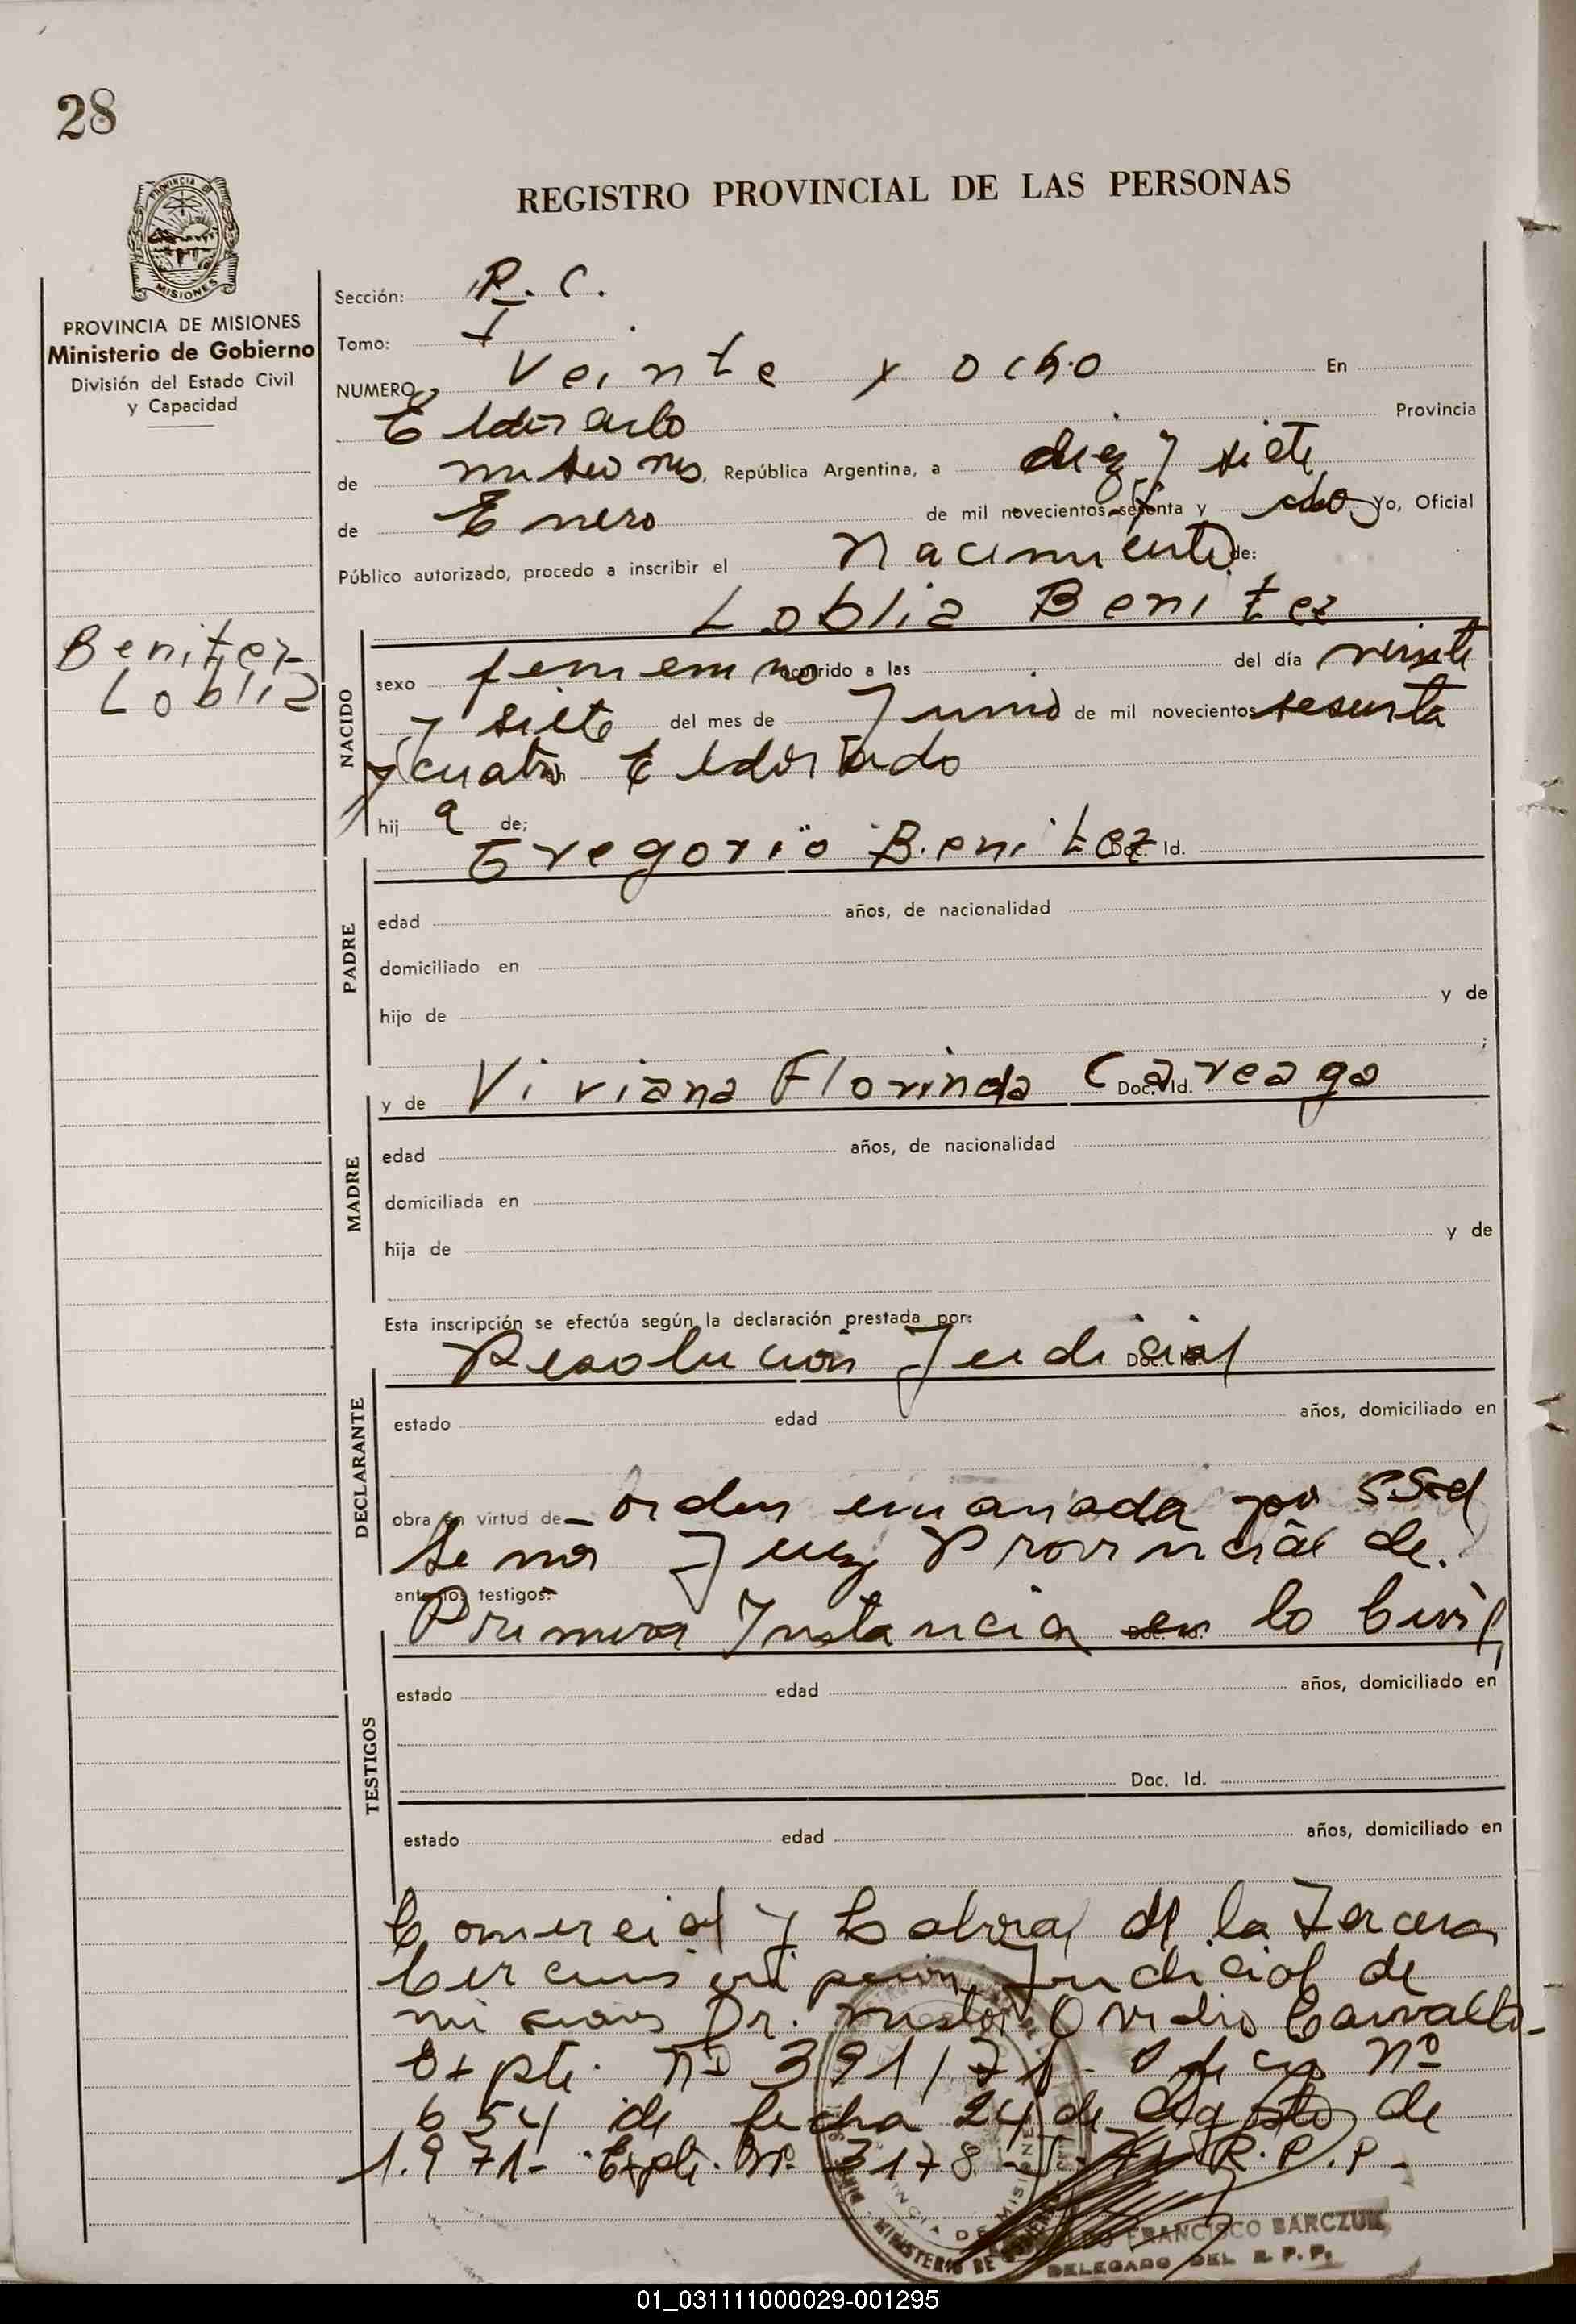 28
REGISTRO PROVINCIAL DE LAS PERSONAS
PROVINCIA DE MISIONES
Ministerio de Gobierno
División del Estado Civil
y Capacidad
Sección: R. C.
Tomo: I
NUMERO Veinte y ocho En
Eldorado Provincia
de misiones, República Argentina, a diez y siete
de Enero de mil novecientos setenta y ocho Yo, Oficial
Público autorizado, procedo a inscribir el Nacimiento de:
Loblia Benitez
Benitez
Loblia
NACIDO
sexo femenino ocurrido a las del día veinte
y siete del mes de Junio de mil novecientos sesenta
y cuatro Eldorado
hij a de;
Gregorio Benitez Doc. Id.
PADRE
edad años, de nacionalidad
domiciliado en
hijo de y de
;
y de Viviana Florinda Careaga Doc. Id.
MADRE
edad años, de nacionalidad
domiciliada en
hija de y de
Esta inscripción se efectúa según la declaración prestada por:
Resolución Judicial Doc. Id.
DECLARANTE
estado edad años, domiciliado en
obra en virtud de - orden emanada por
Juez Provincial de
ante los testigos:
Primera Instancia en lo Civil,
TESTIGOS
estado edad años, domiciliado en
Doc. Id.
estado edad años, domiciliado en
Comercial y Laboral de la Tercera
Circunscripción Judicial de
misiones Dr. Nestor Ovidio Carvallo-
Expte. Nº 391/71- Oficio Nº
654 de fecha 24 de Agosto de
1.971- Expte. Nº 3178- R.P.P.-
FRANCISCO BARCZUK
DELEGADO DEL R. P. P.
01_031111000029-001295